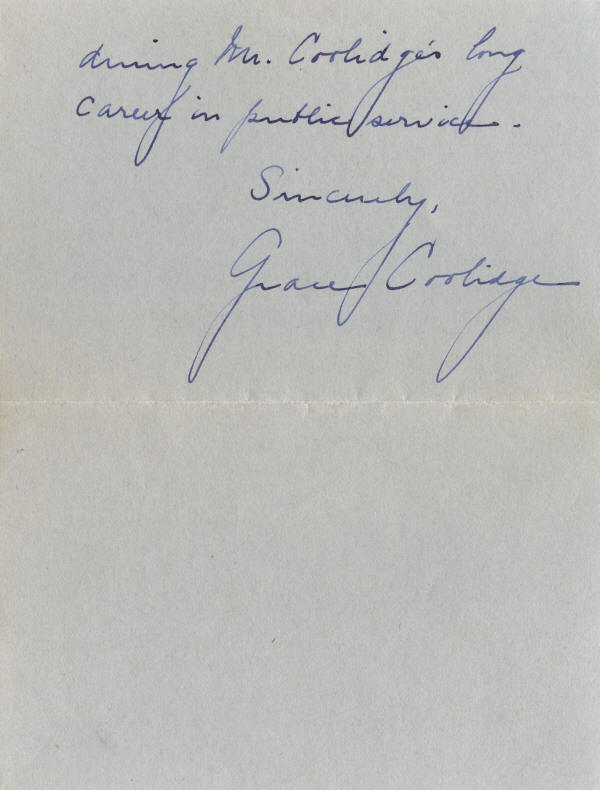 during Mr. Coolidge's long
career in public service.
Sincerely,
Grace Coolidge